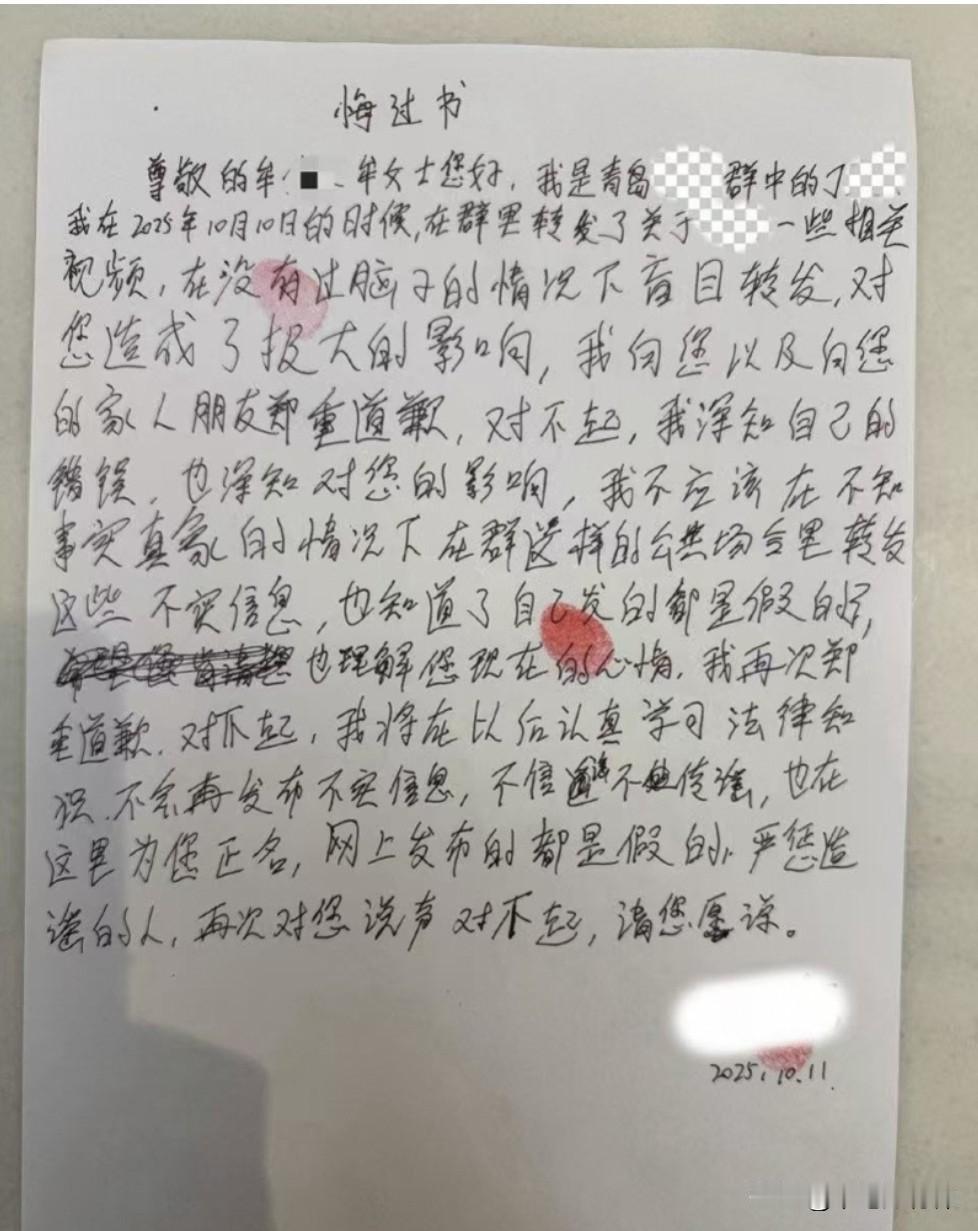 悔过书
尊敬的牟 牟女士您好，我是青岛 群中的丁
我在2025年10月10日的时候，在群里转发了关于 一些相关
视频，在没有过脑子的情况下盲目转发，对
您造成了极大的影响，我向您以及向您
的家人朋友郑重道歉，对不起，我深知自己的
错误，也深知对您的影响，我不应该在不知
事实真象的情况下在群这样的公共场合里转发
这些不实信息，也知道了自己发的都是假的，
也理解您现在的心情，我再次郑
重道歉，对不起，我将在以后认真学习法律知
识，不会再发布不实信息，不信 不 传谣，也在
这里为您正名，网上发布的都是假的，严惩造
谣的人，再次对您说声对不起，请您 谅。
2025.10.11